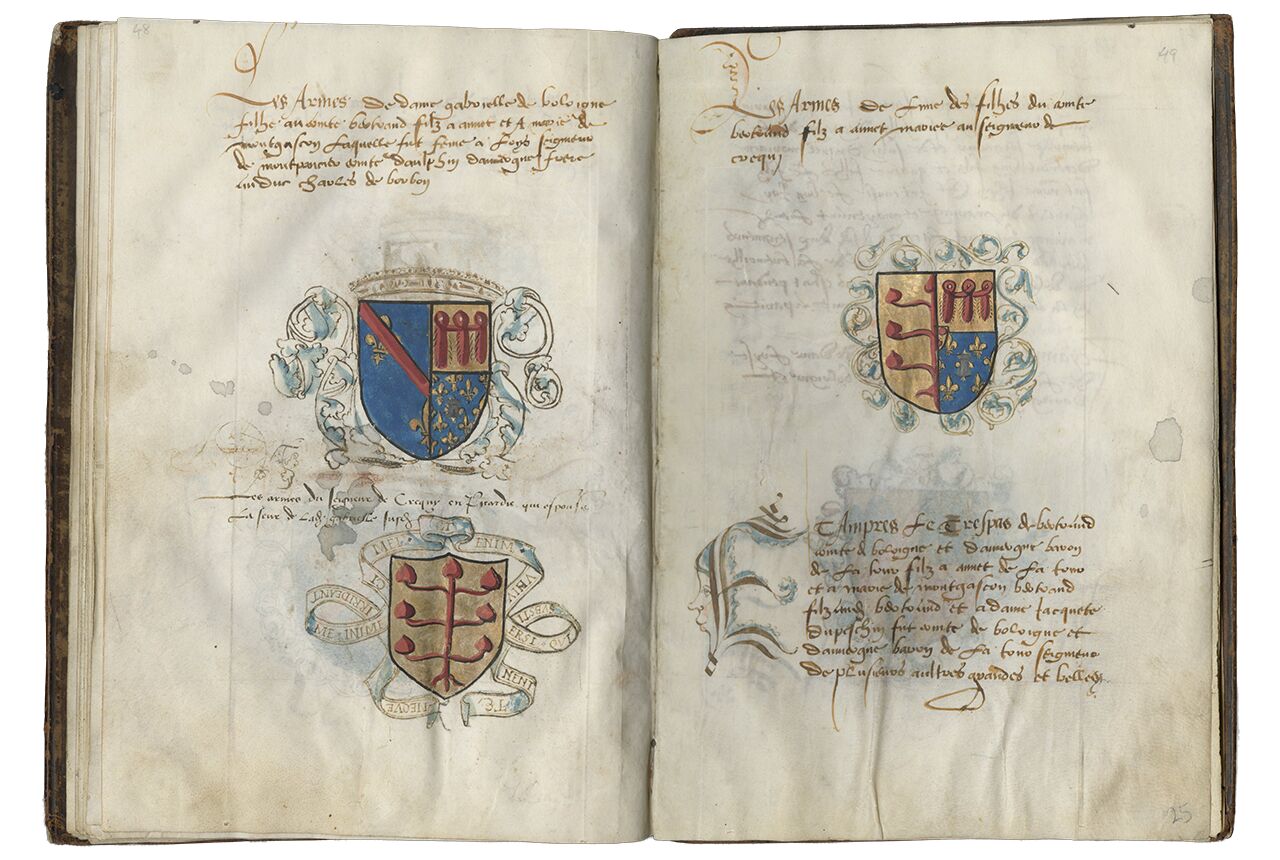 48
Les Armes de dame gabrielle de boloigne
filhe au comte bertrand filz a annet et A marie de
montgascon Laquelle fut feme a Loys seigneur
de montpancier comte daulphin dauvergne frere
au duc charles de borbon
Les armes du seigneur de Crequy en Picardie qui espousa
La seur de Lad. gabrielle
ENIM
NENT
NEQVE
49
Les Armes de Lune des filhes du comte
bertrand filz a annet mariee au seigneur de
crequi
ET Ampres Le Trespas de bertrand
comte de boloigne et dauvergne baron
de La tour filz a annet de La tour
et a marie de montgascon bertrand
filz aud. bertrand et a dame Jacquete
dupeschin fut comte de boloigne et
dauvergne baron de La tour seigneur
de plusieurs aultres grandes et belles
25